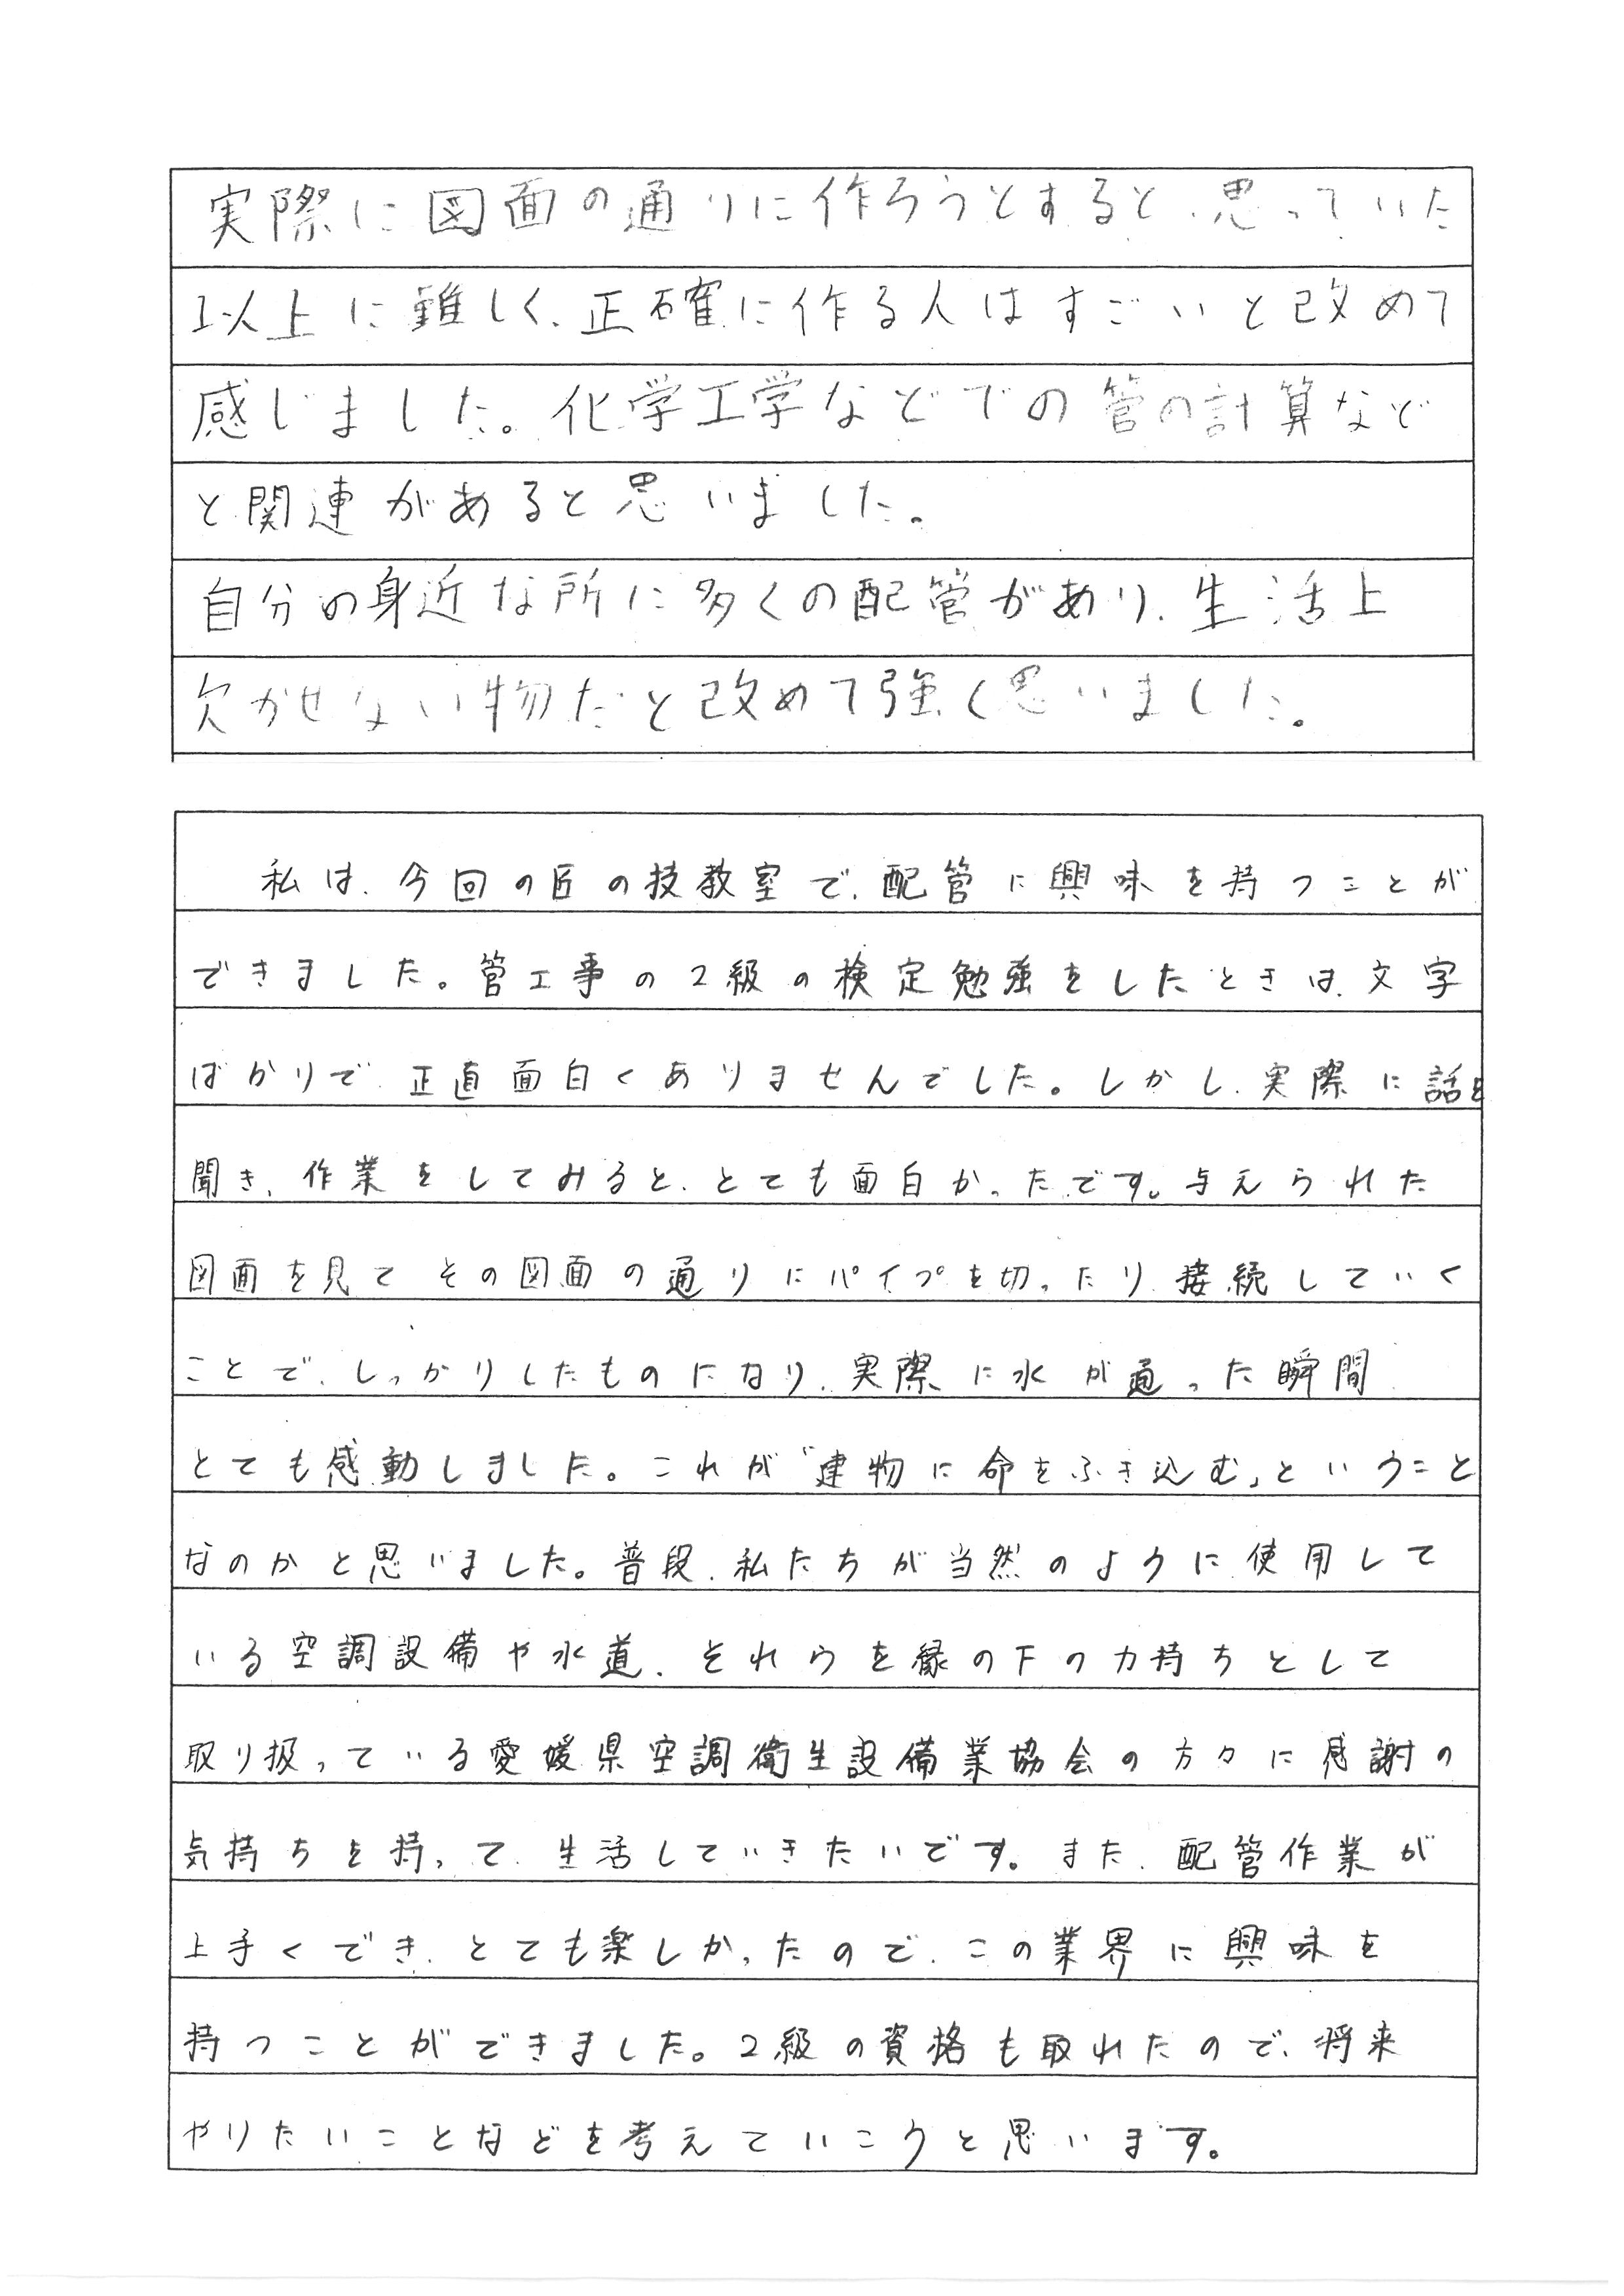 実際に図面の通りに作ろうとすると、思っていた
以上に難しく、正確に作る人はすごいと改めて
感じました。化学工学などでの管の計算など
と関連があると思いました。
自分の身近な所に多くの配管があり、生活上
欠かせない物だと改めて強く思いました。
私は、今回の匠の技教室で、配管に興味を持つことが
できました。管工事の2級の検定勉強をしたときは、文字
ばかりで、正直面白くありませんでした。しかし、実際に話を
聞き、作業をしてみると、とても面白かったです。与えられた
図面を見てその図面の通りにパイプを切ったり、接続していく
ことで、しっかりしたものになり、実際に水が通った瞬間
とても感動しました。これが“建物に命をふき込む」ということ
なのかと思いました。普段、私たちが当然のように使用して
いる空調設備や水道、それらを縁の下の力持ちとして
取り扱っている愛媛県空調衛生設備業協会の方々に感謝の
気持ちを持って、生活していきたいです。また、配管作業が
上手くでき、とても楽しかったので、この業界に興味を
持つことができました。2級の資格も取れたので、将来
やりたいことなどを考えていこうと思います。